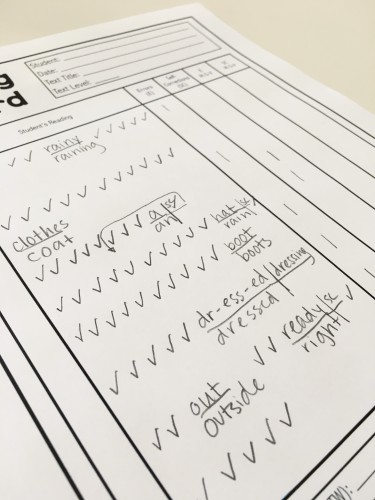 g
rd
Student:
Date:
Text Title:
Text Level:
Student's Reading
Errors (E)
Self Corrections (SC)
✓ ✓ rainy ✓ ✓ ✓ ✓ ✓
raining
✓ ✓ ✓ ✓ ✓ ✓ ✓ ✓ ✓
clothes
coat
✓ ✓ ✓ ✓ ✓ ✓ ✓ ✓ a | sc
an
✓ ✓ ✓ ✓ ✓ ✓ ✓ ✓ hat | sc
rain
✓ ✓ ✓ ✓ ✓ ✓ ✓ ✓ boot
boots
✓ ✓ ✓ ✓ ✓ dr-ess-ed | dressing
dressed
✓ ✓ out ✓ ✓ ready | sc ✓
outside right
✓ ✓ ✓ ✓ ✓